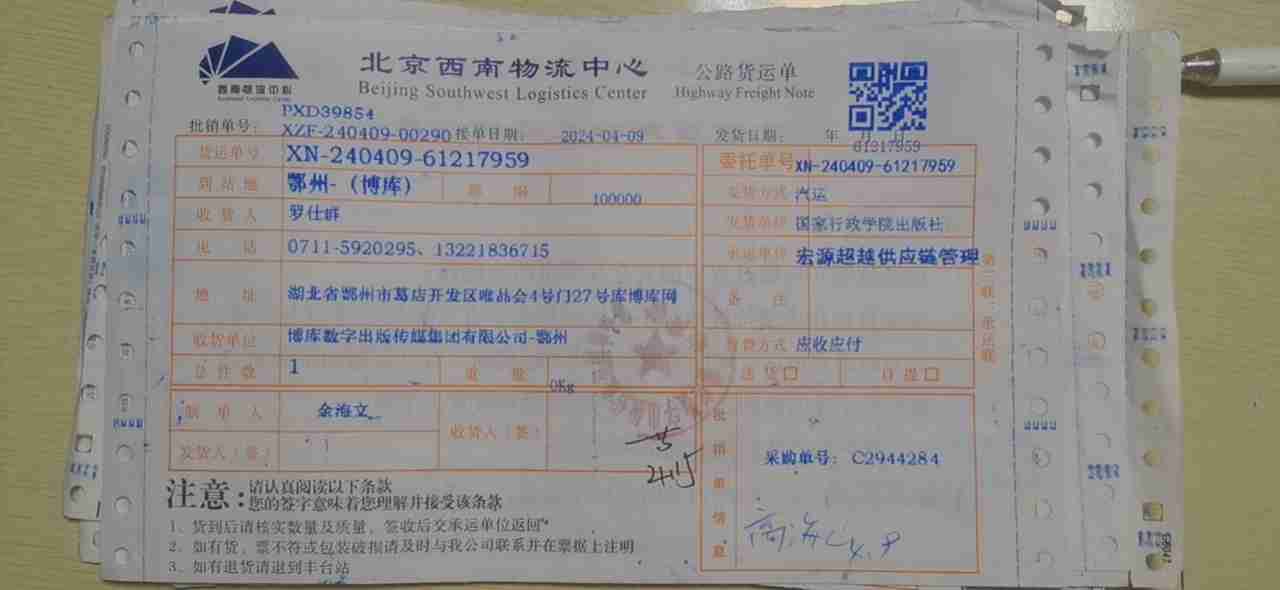 北京西南物流中心
公路货运单
Beijing Southwest Logistics Center
Highway Freight Note
西南物流中心
PXD39854
批销单号: XZF-240409-00290 接单日期: 2024-04-09 发货日期: 年 月 日
61217959
货运单号 XN-240409-61217959 委托单号 XN-240409-61217959
到站地 鄂州-（博库） 邮编 100000 发货方式 汽运
收货人 罗仕群 发货单位 国家行政学院出版社
电话 0711-5920295、13221836715 承运单位 宏源超越供应链管理
地址 湖北省鄂州市葛店开发区唯品会4号门27号库博库网 备注
收货单位 博库数字出版传媒集团有限公司-鄂州 付费方式 应收应付
总件数 1 重量 0Kg 送货□ 自提□
制单人 余海文 收货人（签）
发货人（签）
批销单信息
采购单号: C2944284
第二联:承运联
注意: 请认真阅读以下条款
您的签字意味着您理解并接受该条款
1、货到后请核实数量及质量，签收后交承运单位返回
2、如有货、票不符或包装破损请及时与我公司联系并在票据上注明
3、如有退货请退到丰台站